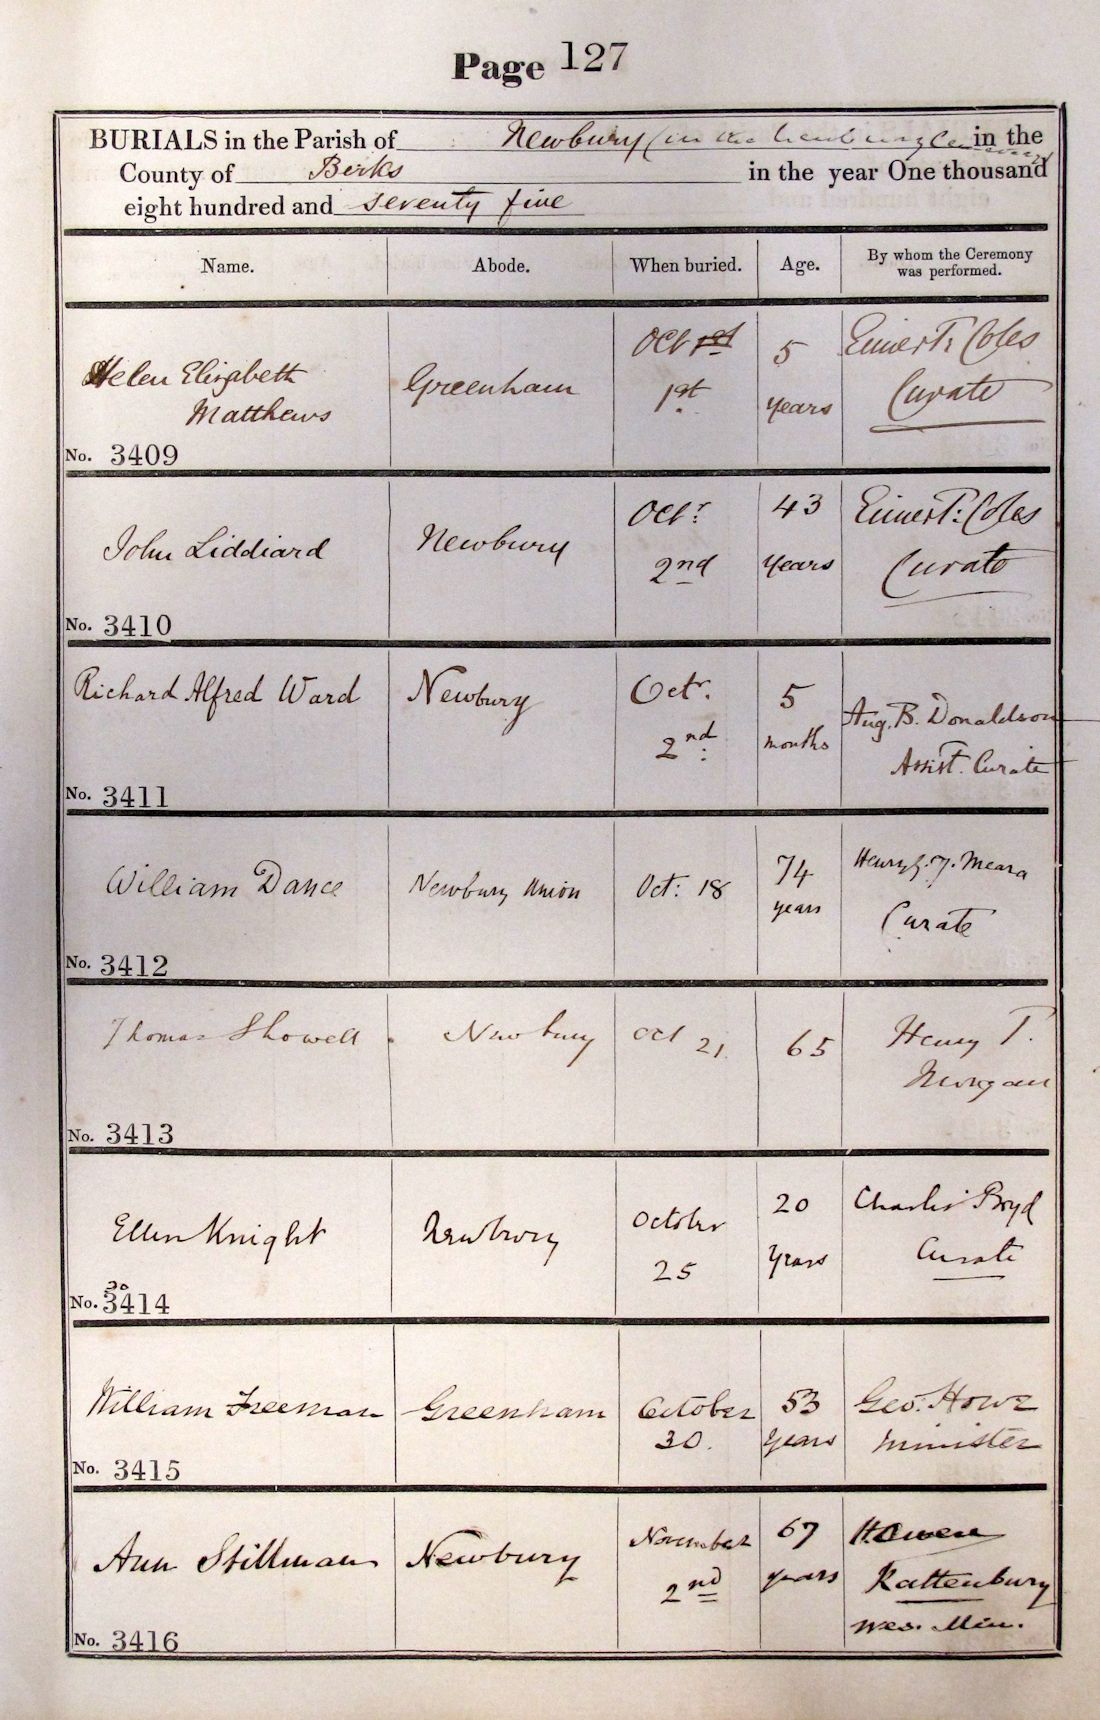 Page 127
BURIALS in the Parish of Newbury (in the Newbury Cemetery in the
County of Berks in the year One thousand
eight hundred and seventy five
Name. Abode. When buried. Age. By whom the Ceremony
was performed.
Helen Elizabeth
Matthews
Greenham
Oct 1st
1st
5
years
Coles
Curate
No. 3409
John Liddiard
Newbury
Octr:
2nd
43
years
Coles
Curate
No. 3410
Richard Alfred Ward
Newbury
Octr.
2nd.
5
months
Aug. B. Donaldson
Assist. Curate
No. 3411
William Dance
Newbury Union
Oct: 18
74
years
Henry J. Meara
Curate
No. 3412
Thomas Showell
Newbury
Oct 21.
65
Henry T.
Morgan
No. 3413
Ellen Knight
Newbury
October
25
20
Years
Charles Boyd
Curate
30
No. 3414
William Freeman
Greenham
October
30.
53
Years
Geo. Howe
Minister
No. 3415
Ann Stillman
Newbury
November
2nd
67
years
H. Owen
Rattenbury
Wes. Min.
No. 3416